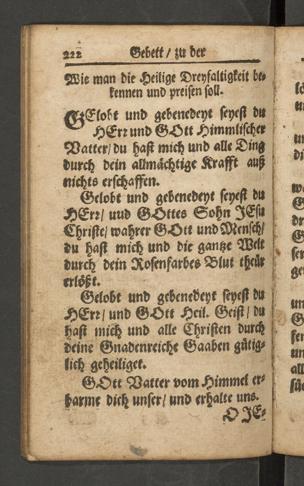 222 Gebett / zu der
Wie man die Heilige Dreyfaltigkeit be-
kennen und preisen soll.
GElobt und gebenedeyt seyest du
HErr und GOtt Himmlischer
Vatter / du hast mich und alle Ding
durch dein allmächtige Krafft auß
nichts erschaffen.
Gelobt und gebenedeyt seyest du
HErr / und GOttes Sohn JEsu
Christe / wahrer GOtt und Mensch /
du hast mich und die gantze Welt
durch dein Rosenfarbes Blut theür
erlößt.
Gelobt und gebenedeyt seyest du
HErr / und GOtt Heil. Geist / du
hast mich und alle Christen durch
deine Gnadenreiche Gaaben gütig-
lich geheiliget.
GOtt Vatter vom Himmel er-
barme dich unser / und erhalte uns.
O JE-